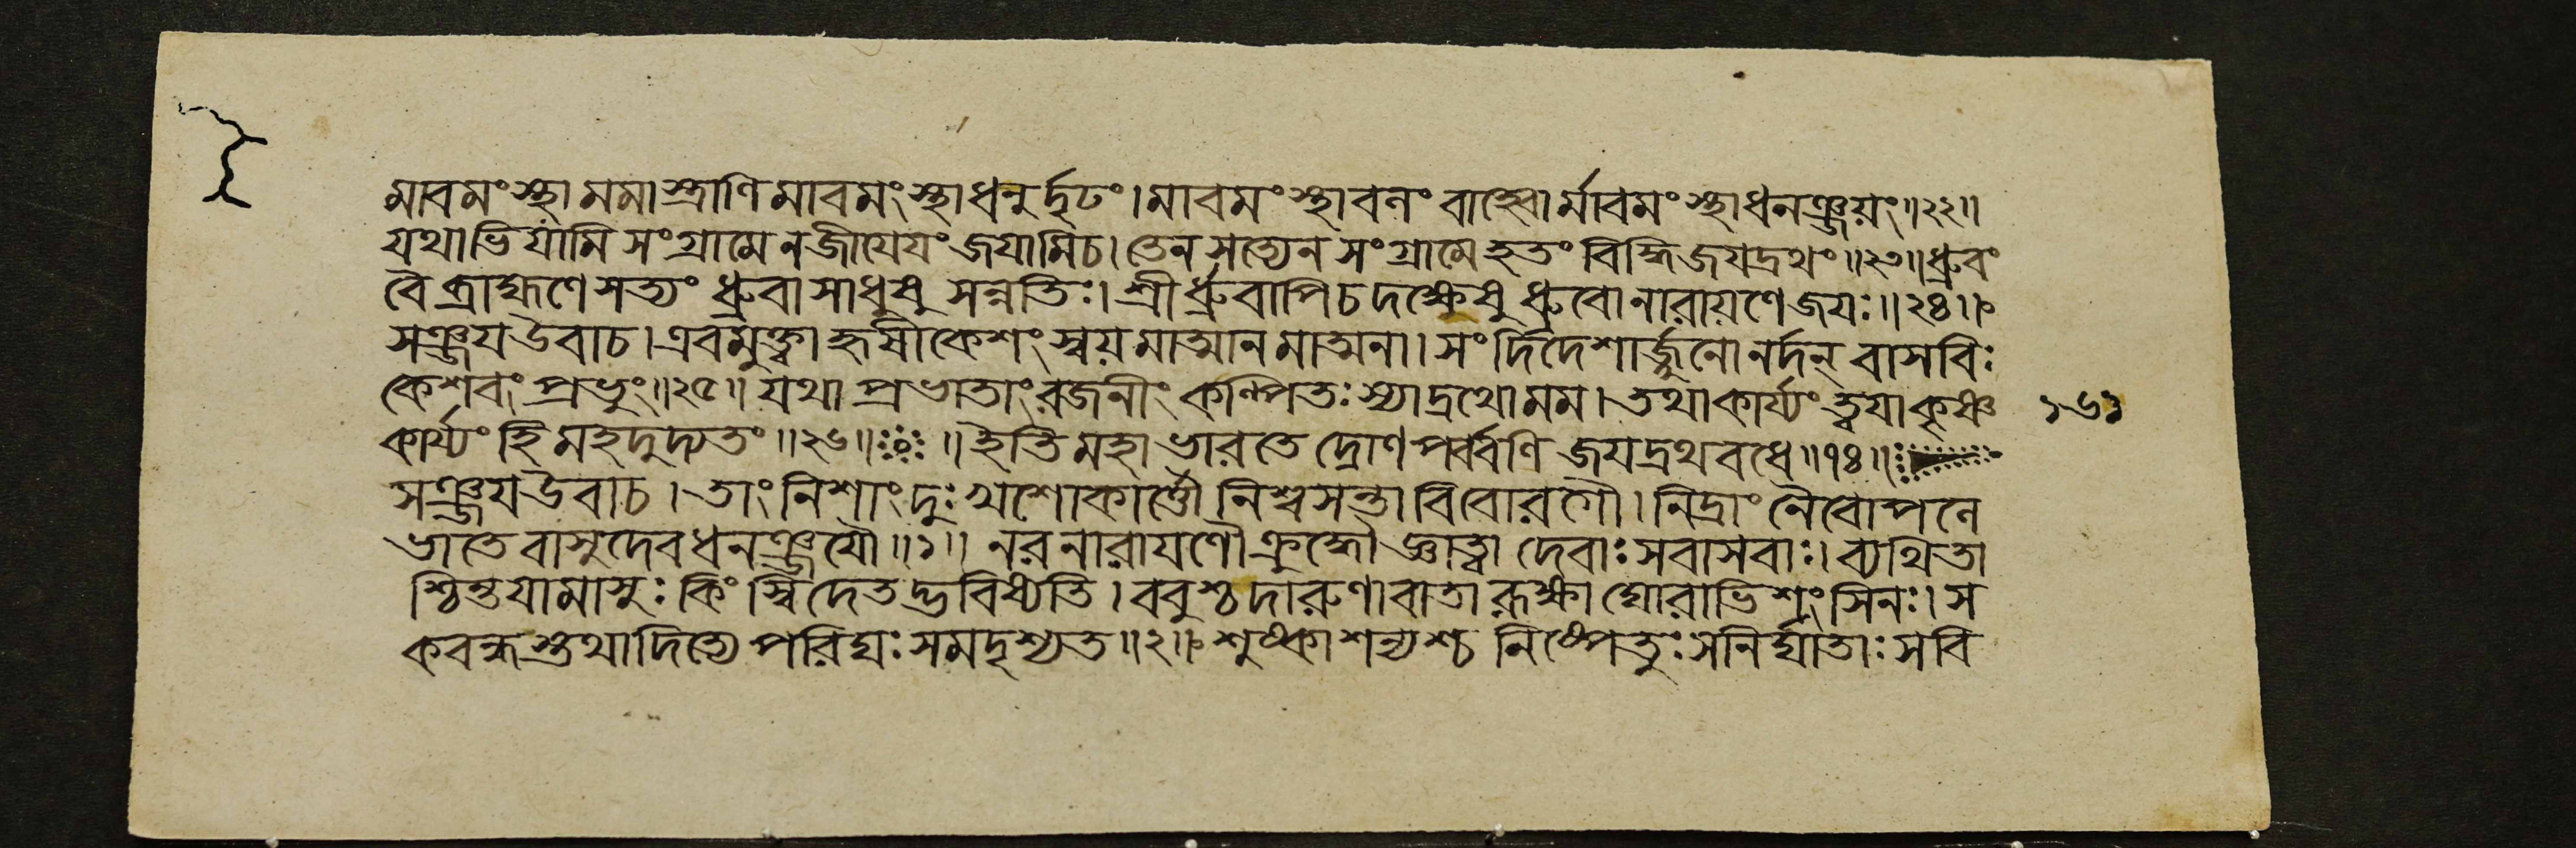 মাবমংস্থা মমাস্ত্রাণি মাবমংস্থাধনুর্দৃঢং। মাবমংস্থাবনং বাহ্বোর্মাবমংস্থাধনঞ্জয়ং॥২২॥
যথাভিযামি সংগ্রামে নজীযেযং জযামিচ। তেন সত্যেন সংগ্রামে হতং বিদ্ধি জযদ্রথং॥২৩॥ধ্রুবং
বৈ ব্রাহ্মণে সত্যং ধ্রুবা সাধুষু সন্নতিঃ। শ্রীর্ধ্রুবাপিচ দক্ষেষু ধ্রুবো নারায়ণে জযঃ॥২৪॥
সঞ্জযউবাচ। এবমুক্ত্বা হৃষীকেশং স্বয়মাত্মানমাত্মনা। সংদিদেশার্জ্জুনো নর্দন্ বাসবিঃ
কেশবং প্রভুং॥২৫॥ যথা প্রভাতাং রজনীং কল্পিতঃ স্যাদ্রথো মম। তথা কার্য্যং ত্বযা কৃষ্ণ ১৬১
কার্য্যং হি মহদুদ্যতং॥২৬॥ ॥ ইতি মহাভারতে দ্রোণপর্ব্বণি জযদ্রথবধে॥৭৪॥
সঞ্জযউবাচ। তাং নিশাং দুঃখশোকার্ত্তৌ নিশ্বসন্তাবিবোরগৌ। নিদ্রাং নৈবোপনে
ভাতে বাসুদেবধনঞ্জযৌ॥১॥ নরনারাযণৌ ক্রুদ্ধৌ জ্ঞাত্বা দেবাঃ সবাসবাঃ। ব্যথিতা
শ্চিন্তযামাসুঃ কিং স্বিদেতদ্ভবিষ্যতি। ববুশ্চ দারুণা বাতা রূক্ষা ঘোরাভিশংসিনঃ। স
কবন্ধস্তথাদিত্যে পরিঘঃ সমদৃশ্যত॥২॥ শুষ্কাশন্যশ্চ নিষ্পেতুঃ সনির্ঘাতাঃ সবি